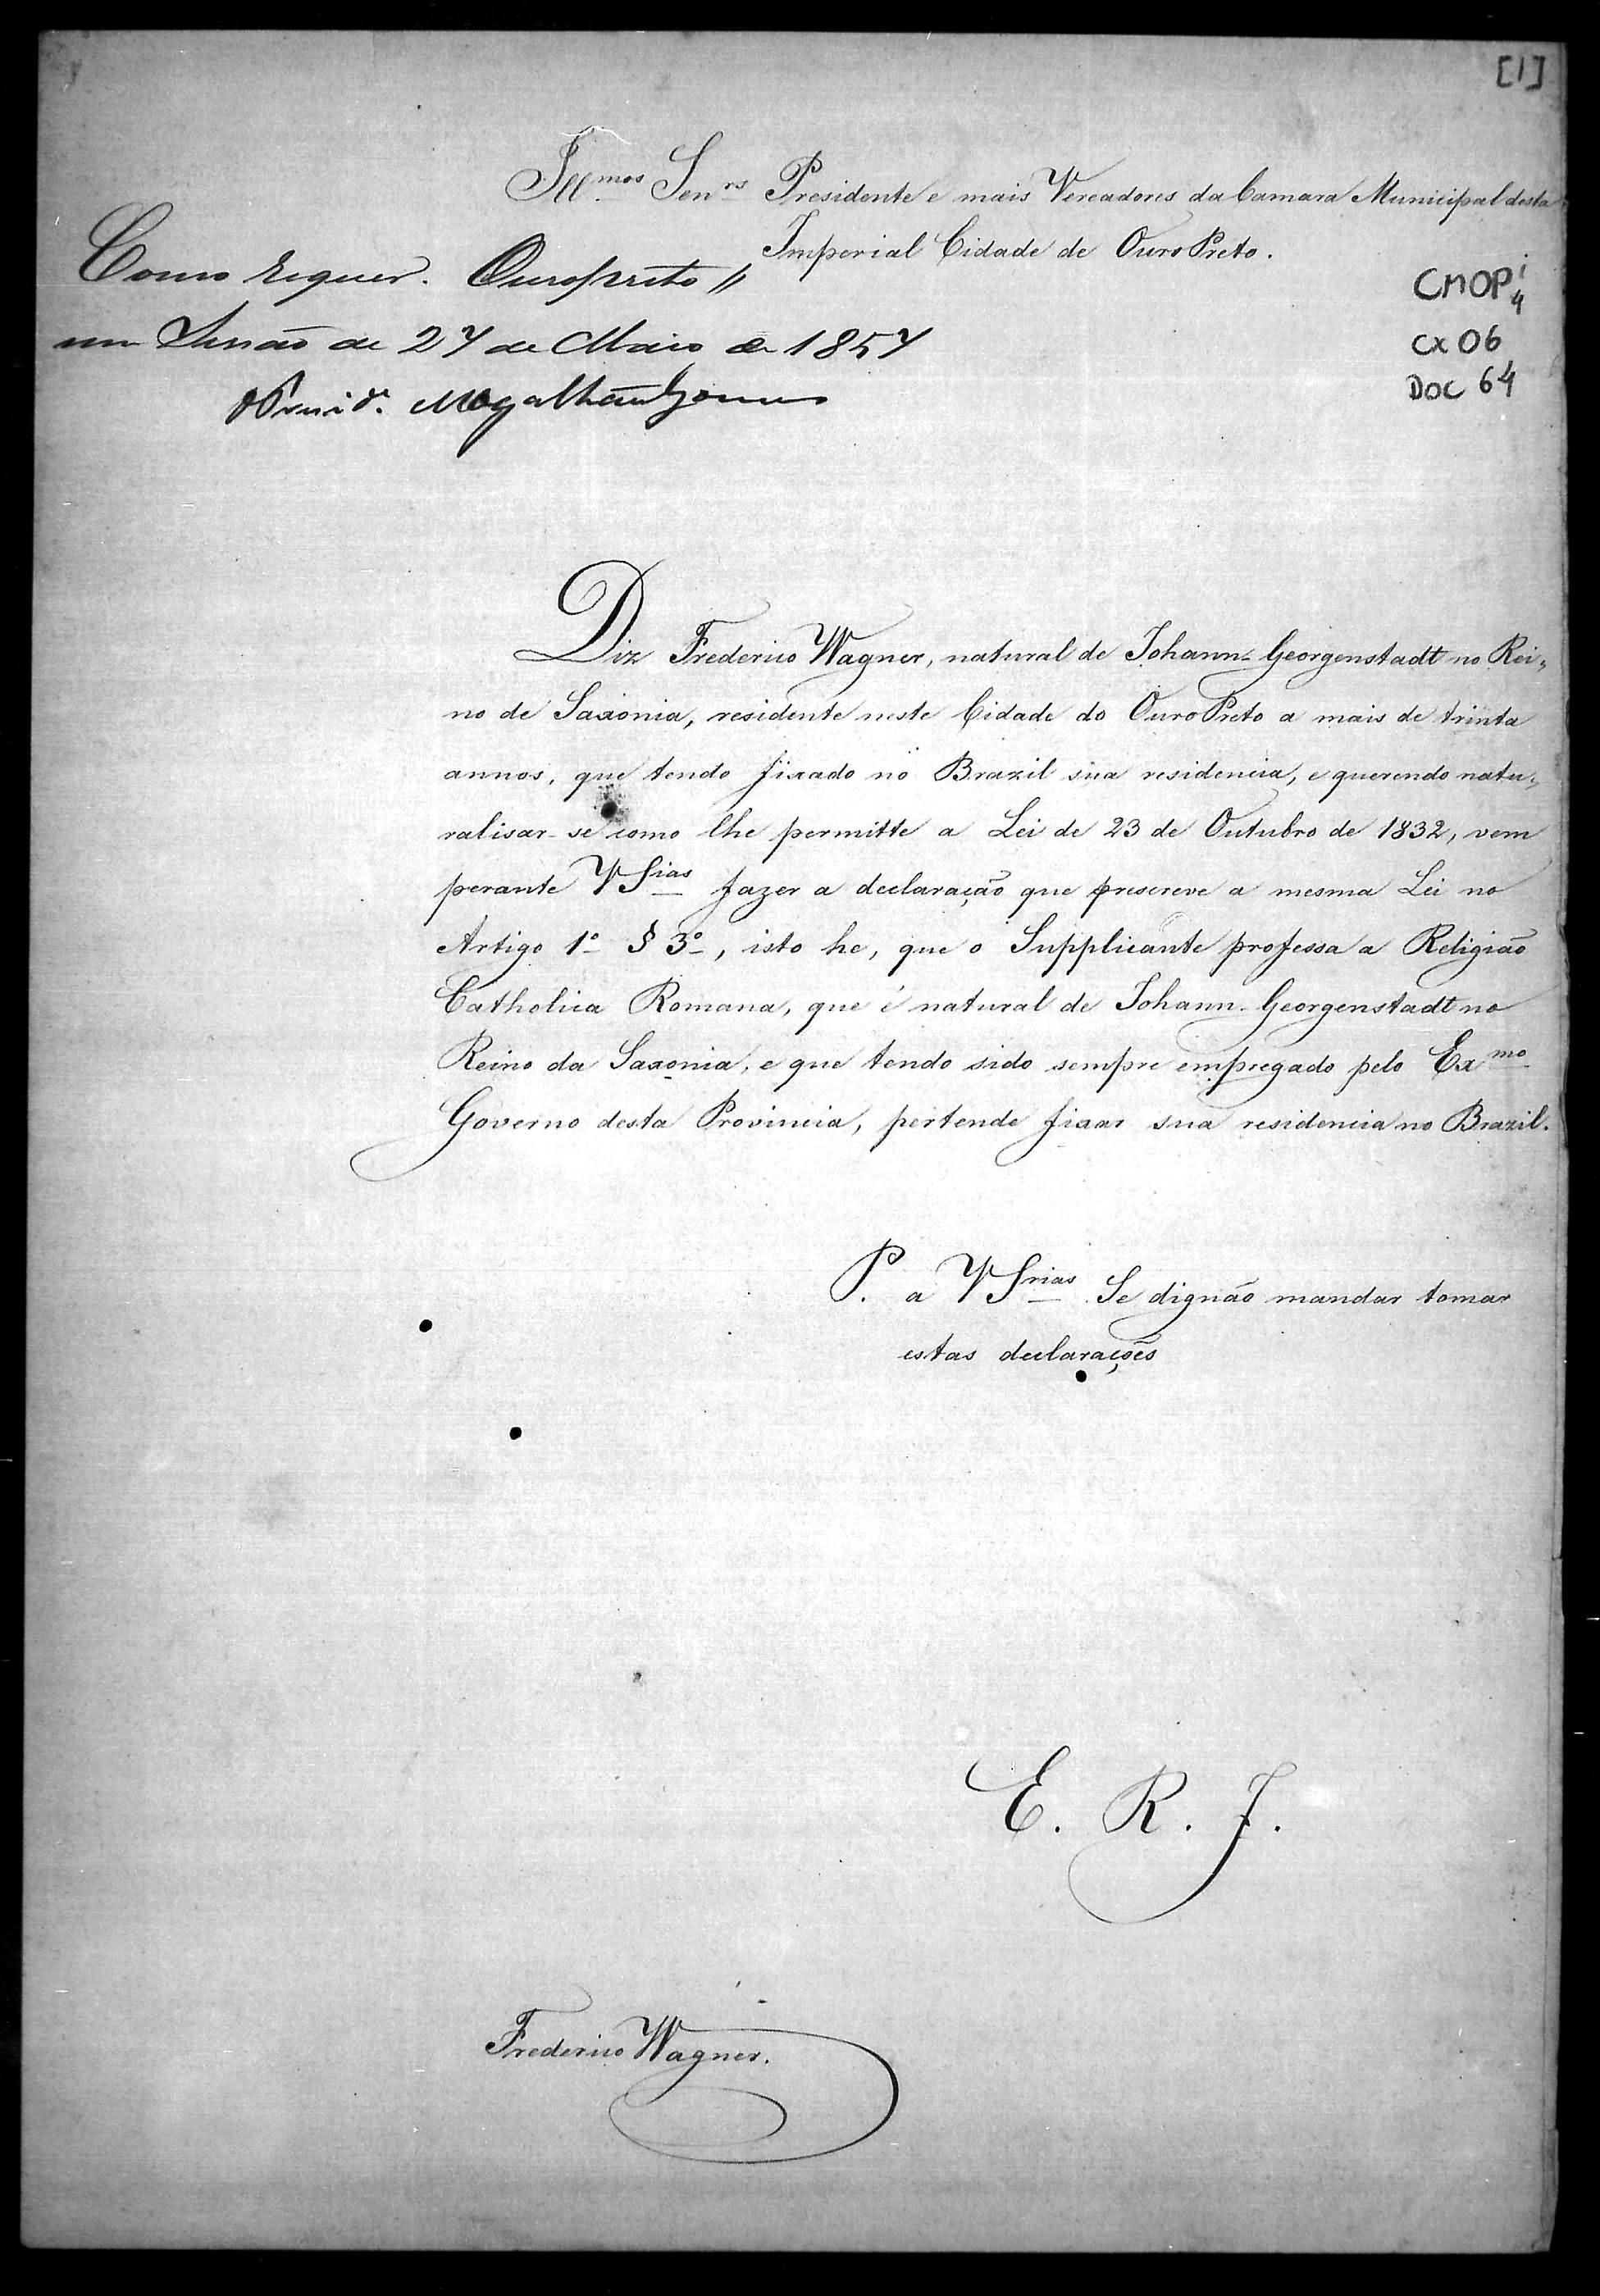 [1]
Ill.mos Senrs Presidente e mais Vereadores da Camara Municipal desta
Imperial Cidade de Ouro Preto.
Como requer. Ouropreto //
em Sessão de 27 de Maio de 1857
Magalhães Gomes
CMOP
4
CX 06
DOC 64
Diz Frederico Wagner, natural de Johann-Georgenstadt no Rei„
no de Saxonia, residente neste Cidade do Ouro Preto a mais de trinta
annos, que tendo fixado no Brazil sua residencia, e querendo natu„
ralisar-se como lhe permitte a Lei de 23 de Outubro de 1832, vem
perante VSias fazer a declaração que prescreve a mesma Lei no
Artigo 1º § 3º, isto he, que o Supplicante professa a Religião
Catholica Romana, que é natural de Johann-Georgenstadt no
Reino da Saxonia, e que tendo sido sempre empregado pelo Exmo
Governo desta Provincia, pertende fixar sua residencia no Brazil.
P. a VSrias Se dignão mandar tomar
estas declarações
E. R. J.
Frederico Wagner.